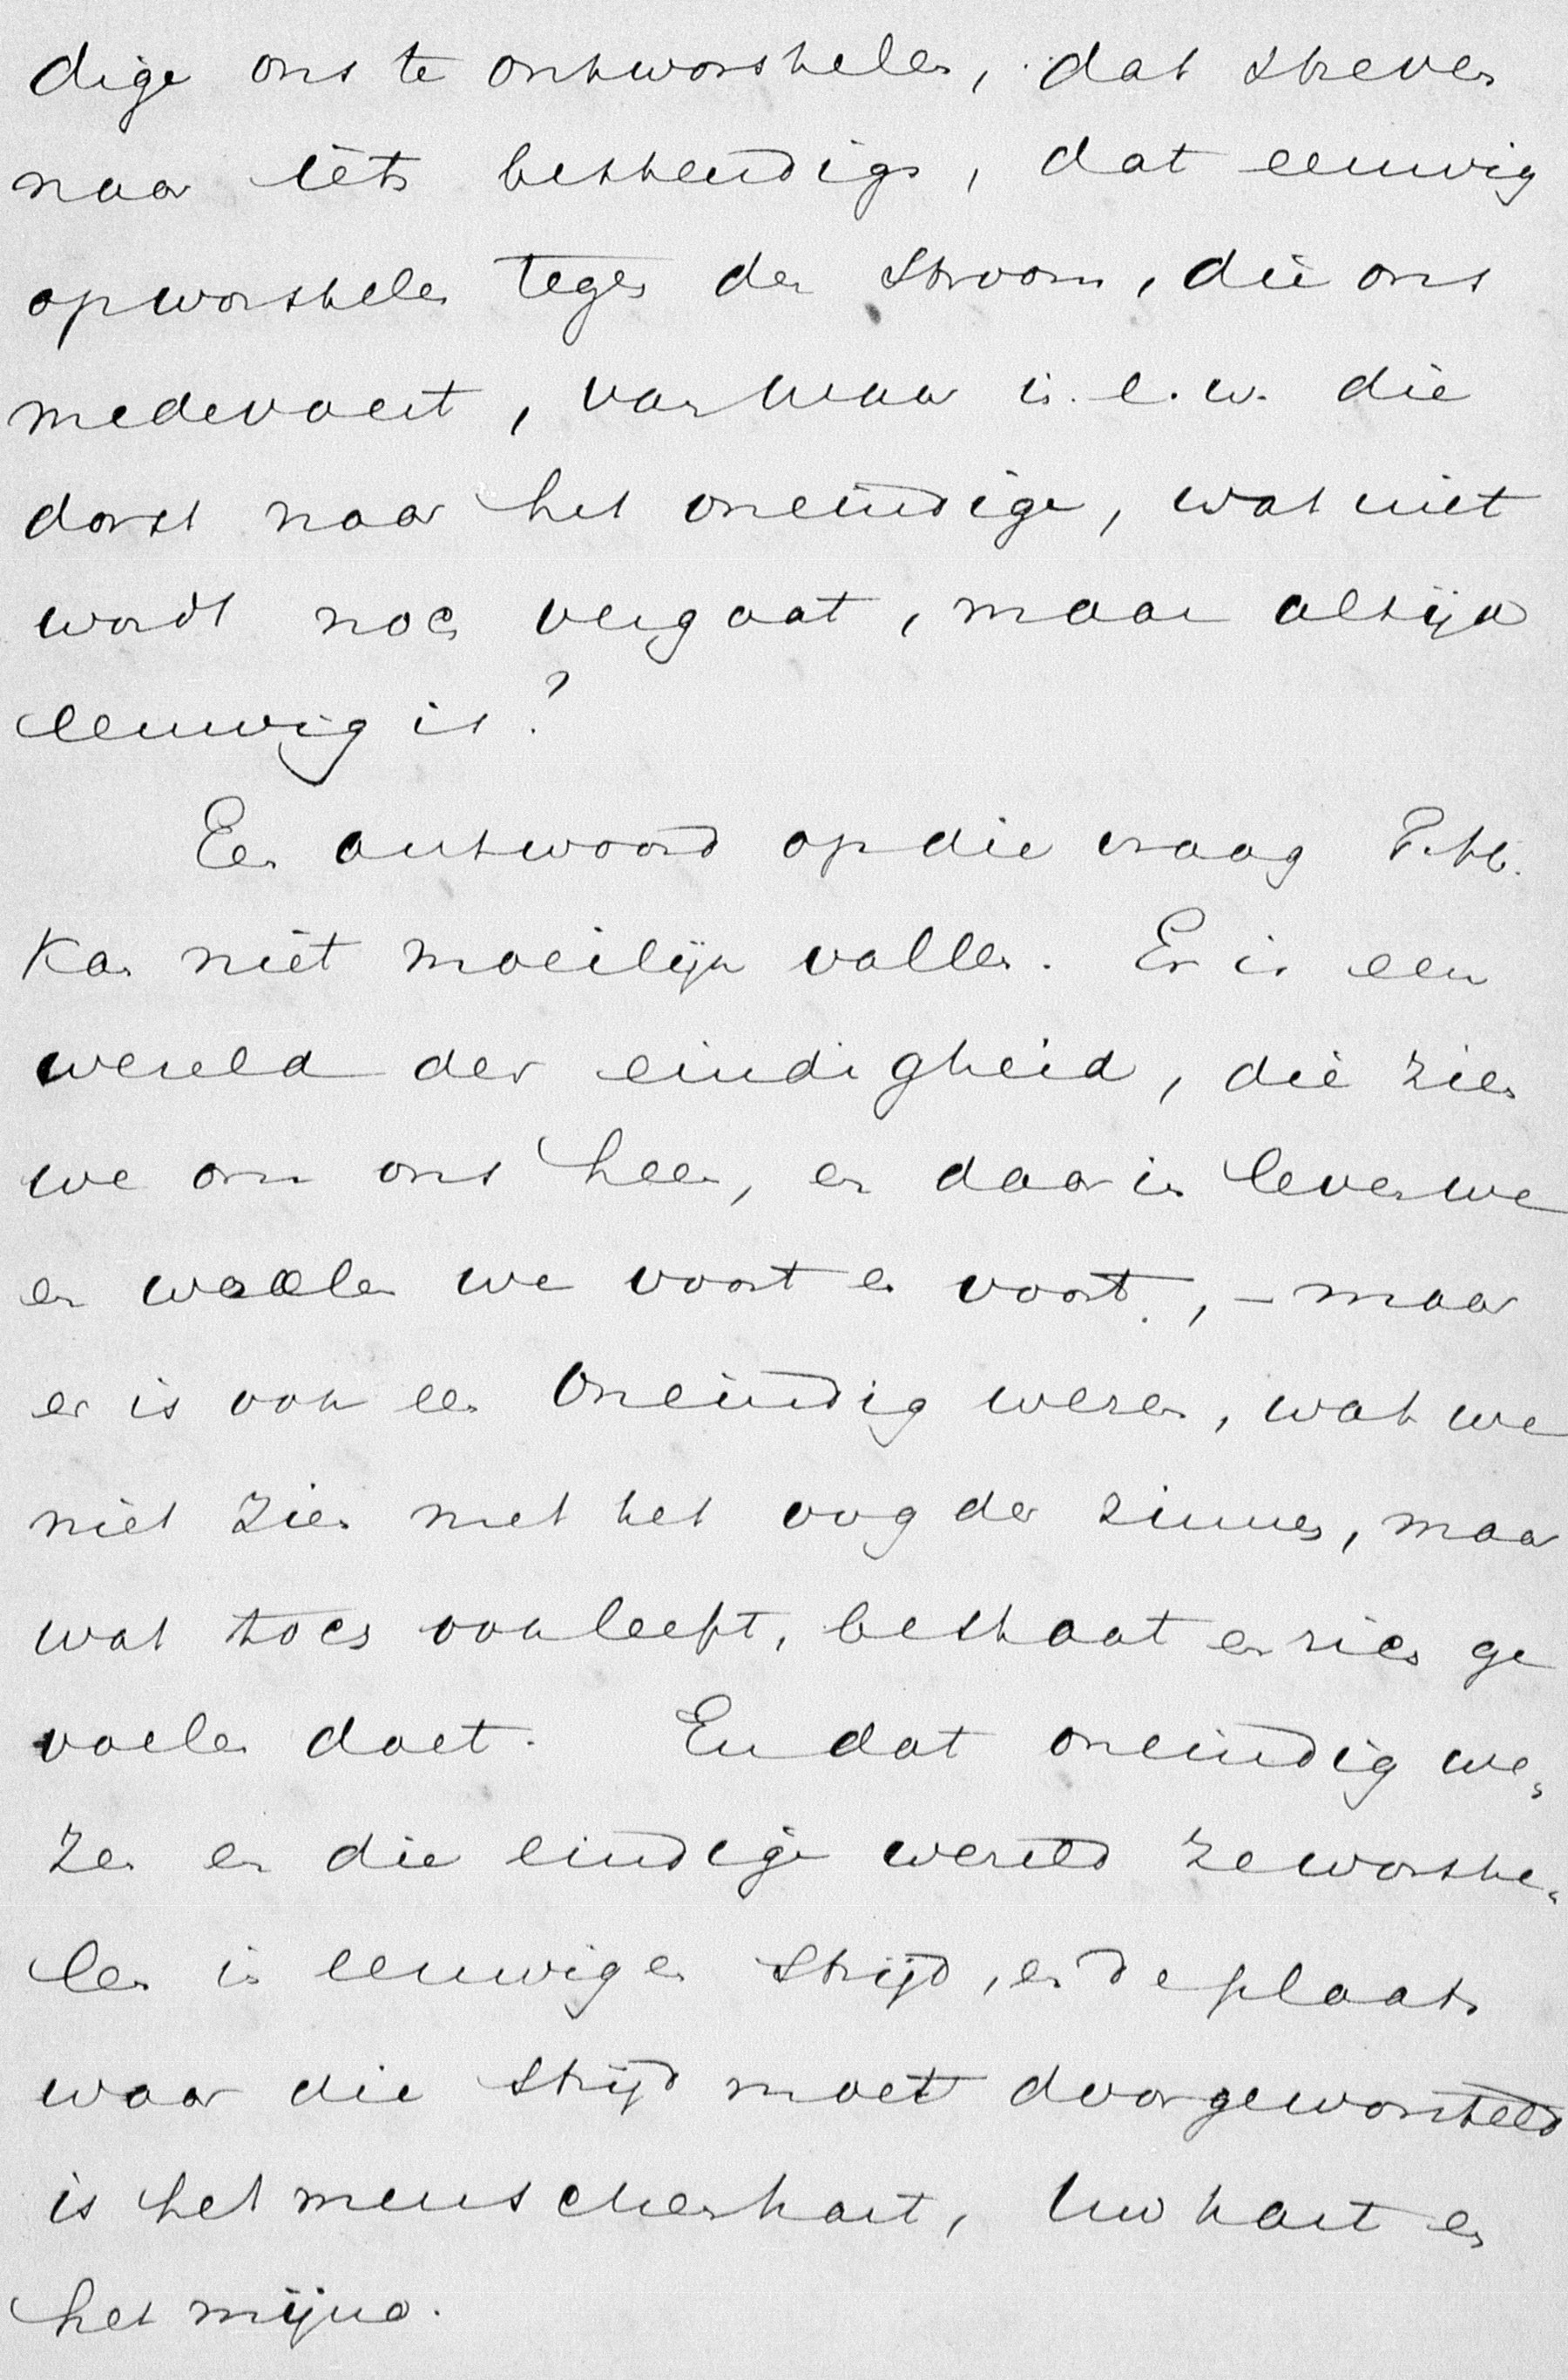 dige ons te ontworstelen, dat streven
naar iets bestendigs, dat eeuwig
opworstelen tegen den stroom, die ons
medevoert, vanwaar i. e. w. die
dorst naar het oneindige, wat niet
wordt noch vergaat, maar altijd
eeuwig is?
Een antwoord op die vraag P. H.
kan niet moeilijk vallen. Er is een
wereld der eindigheid, die zien
we om ons heen, en daarin leven we
en woelen we voort en voort, – maar
er is ook een Oneindig wezen, wat we
niet zien met het oog der zinnen, maar
wat toch ook leeft, bestaat en zich ge
voelen doet. En dat oneindig we„
zen en die eindige wereld ze worste„
len in eeuwigen strijd, en de plaats
waar die strijd moet doorgeworsteld
is het menschenhart, Uw hart en
het mijne.